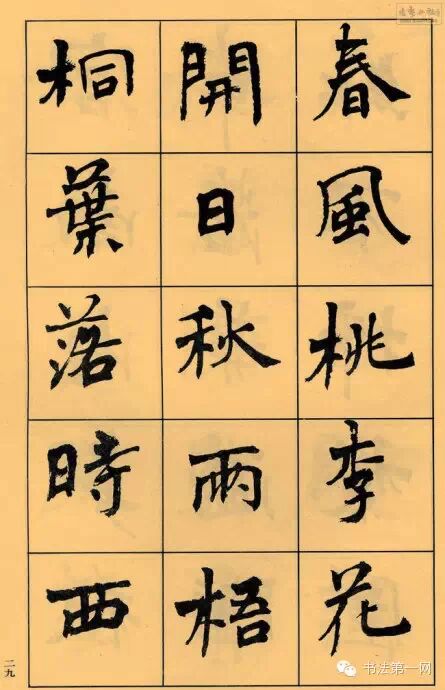 春風桃李花
開日秋雨梧
桐葉落時西
二九
书法第一网